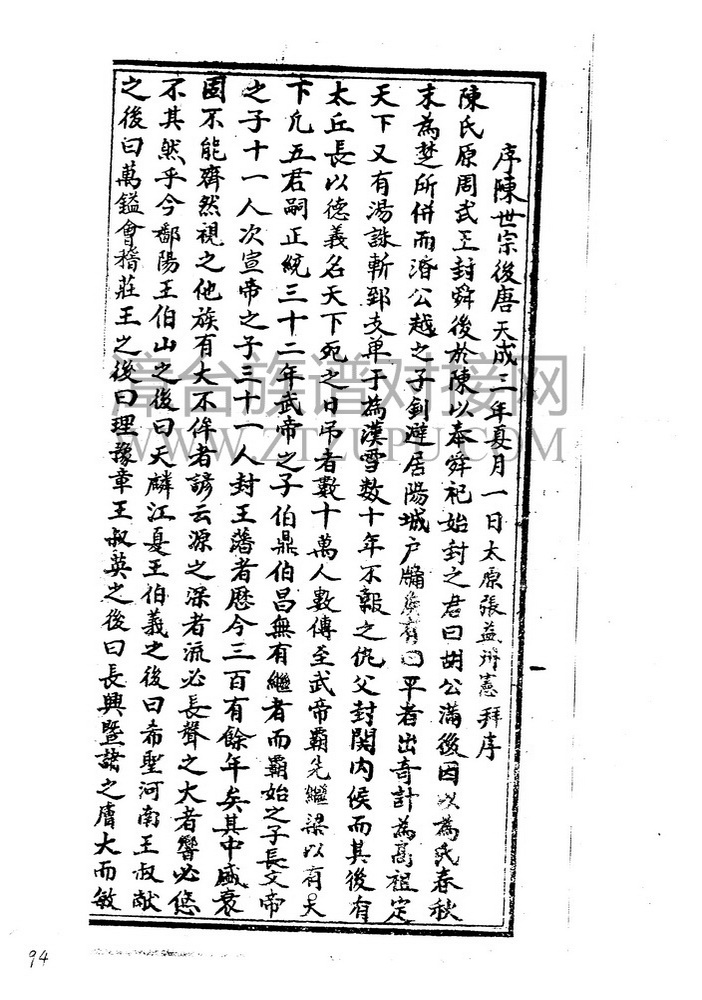 序陳世宗後唐天成三年夏月一日太原張益州憲拜序
陳氏原周武王封舜後於陳以奉舜祀始封之君曰胡公滿後因以為氏春秋
末為楚所併而湣公越之子釗避居陽城戶牖後有曰平者出奇計為高祖定
天下又有湯誅斬郅支单于為漢雪数十年不報之仇父封関内侯而其後有
太丘長以德義名天下死之日吊者數十萬人數傳至武帝霸先繼梁以有天
下凢五君嗣正統三十二年武帝之子伯鼎伯昌無有繼者而霸始之子長文帝
之子十一人次宣帝之子三十一人封王藩者歷今三百有餘年矣其中盛衰
固不能齊然視之他族有大不侔者諺云源之深者流必長聲之大者響必悠
不其然乎今鄱陽王伯山之後曰天麟江夏王伯義之後曰希聖河南王叔献
之後曰萬鎰會稽莊王之後曰理豫章王叔英之後曰長興暨諸之膚大而敏
94
漳台族谱对接网
WWW.ZTZUPU.COM